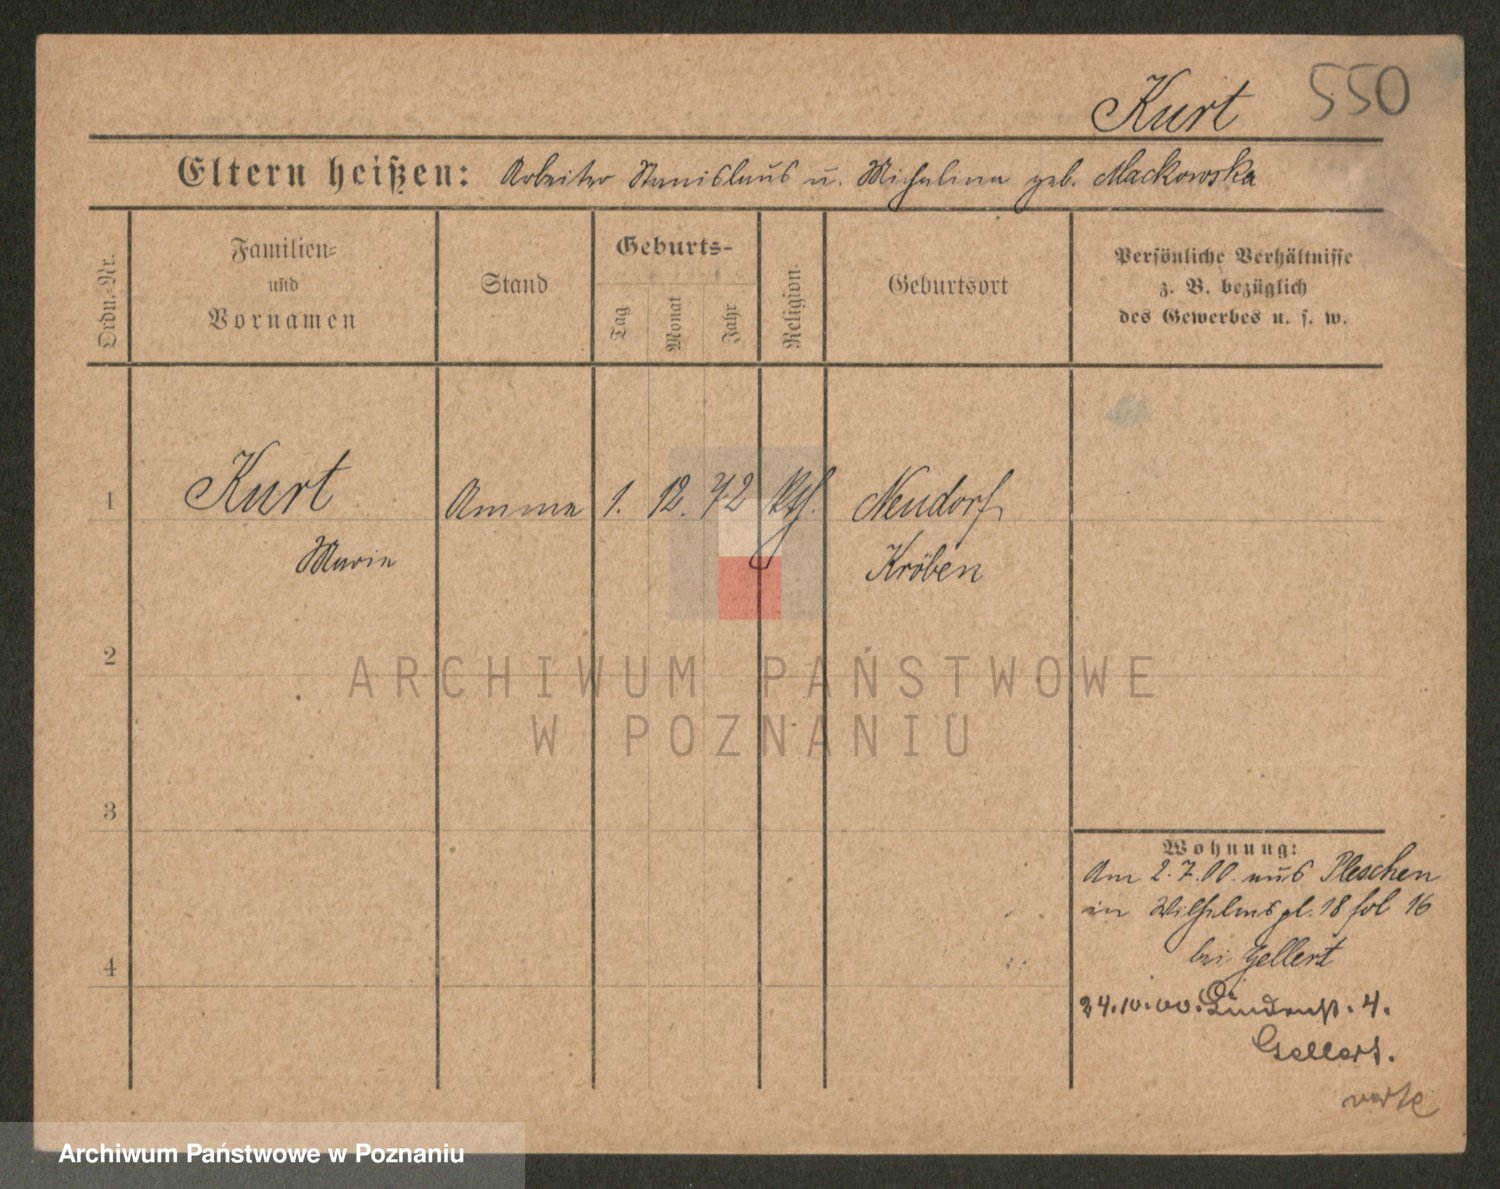 Kurt 550
Eltern heißen: Arbeiter Stanislaus u. Michalina geb. Mackowska
Ordn.-Nr.
Familien-
und
Vornamen
Stand
Geburts-
Tag
Monat
Jahr
Religion
Geburtsort
Persönliche Verhältnisse
z. B. bezüglich
des Gewerbes u. s. w.
1 Kurt Amme 1. 12. 72 kth. Neudorf
Marie Kröben
2
ARCHIWUM PAŃSTWOWE
W POZNANIU
3
Wohnung:
Am 2.7.00. aus Pleschen
in Wilhelmspl. 18 fol 16
bei Gellert
4
24.10.00. Lindenst. 4.
Gellert.
verte
Archiwum Państwowe w Poznaniu